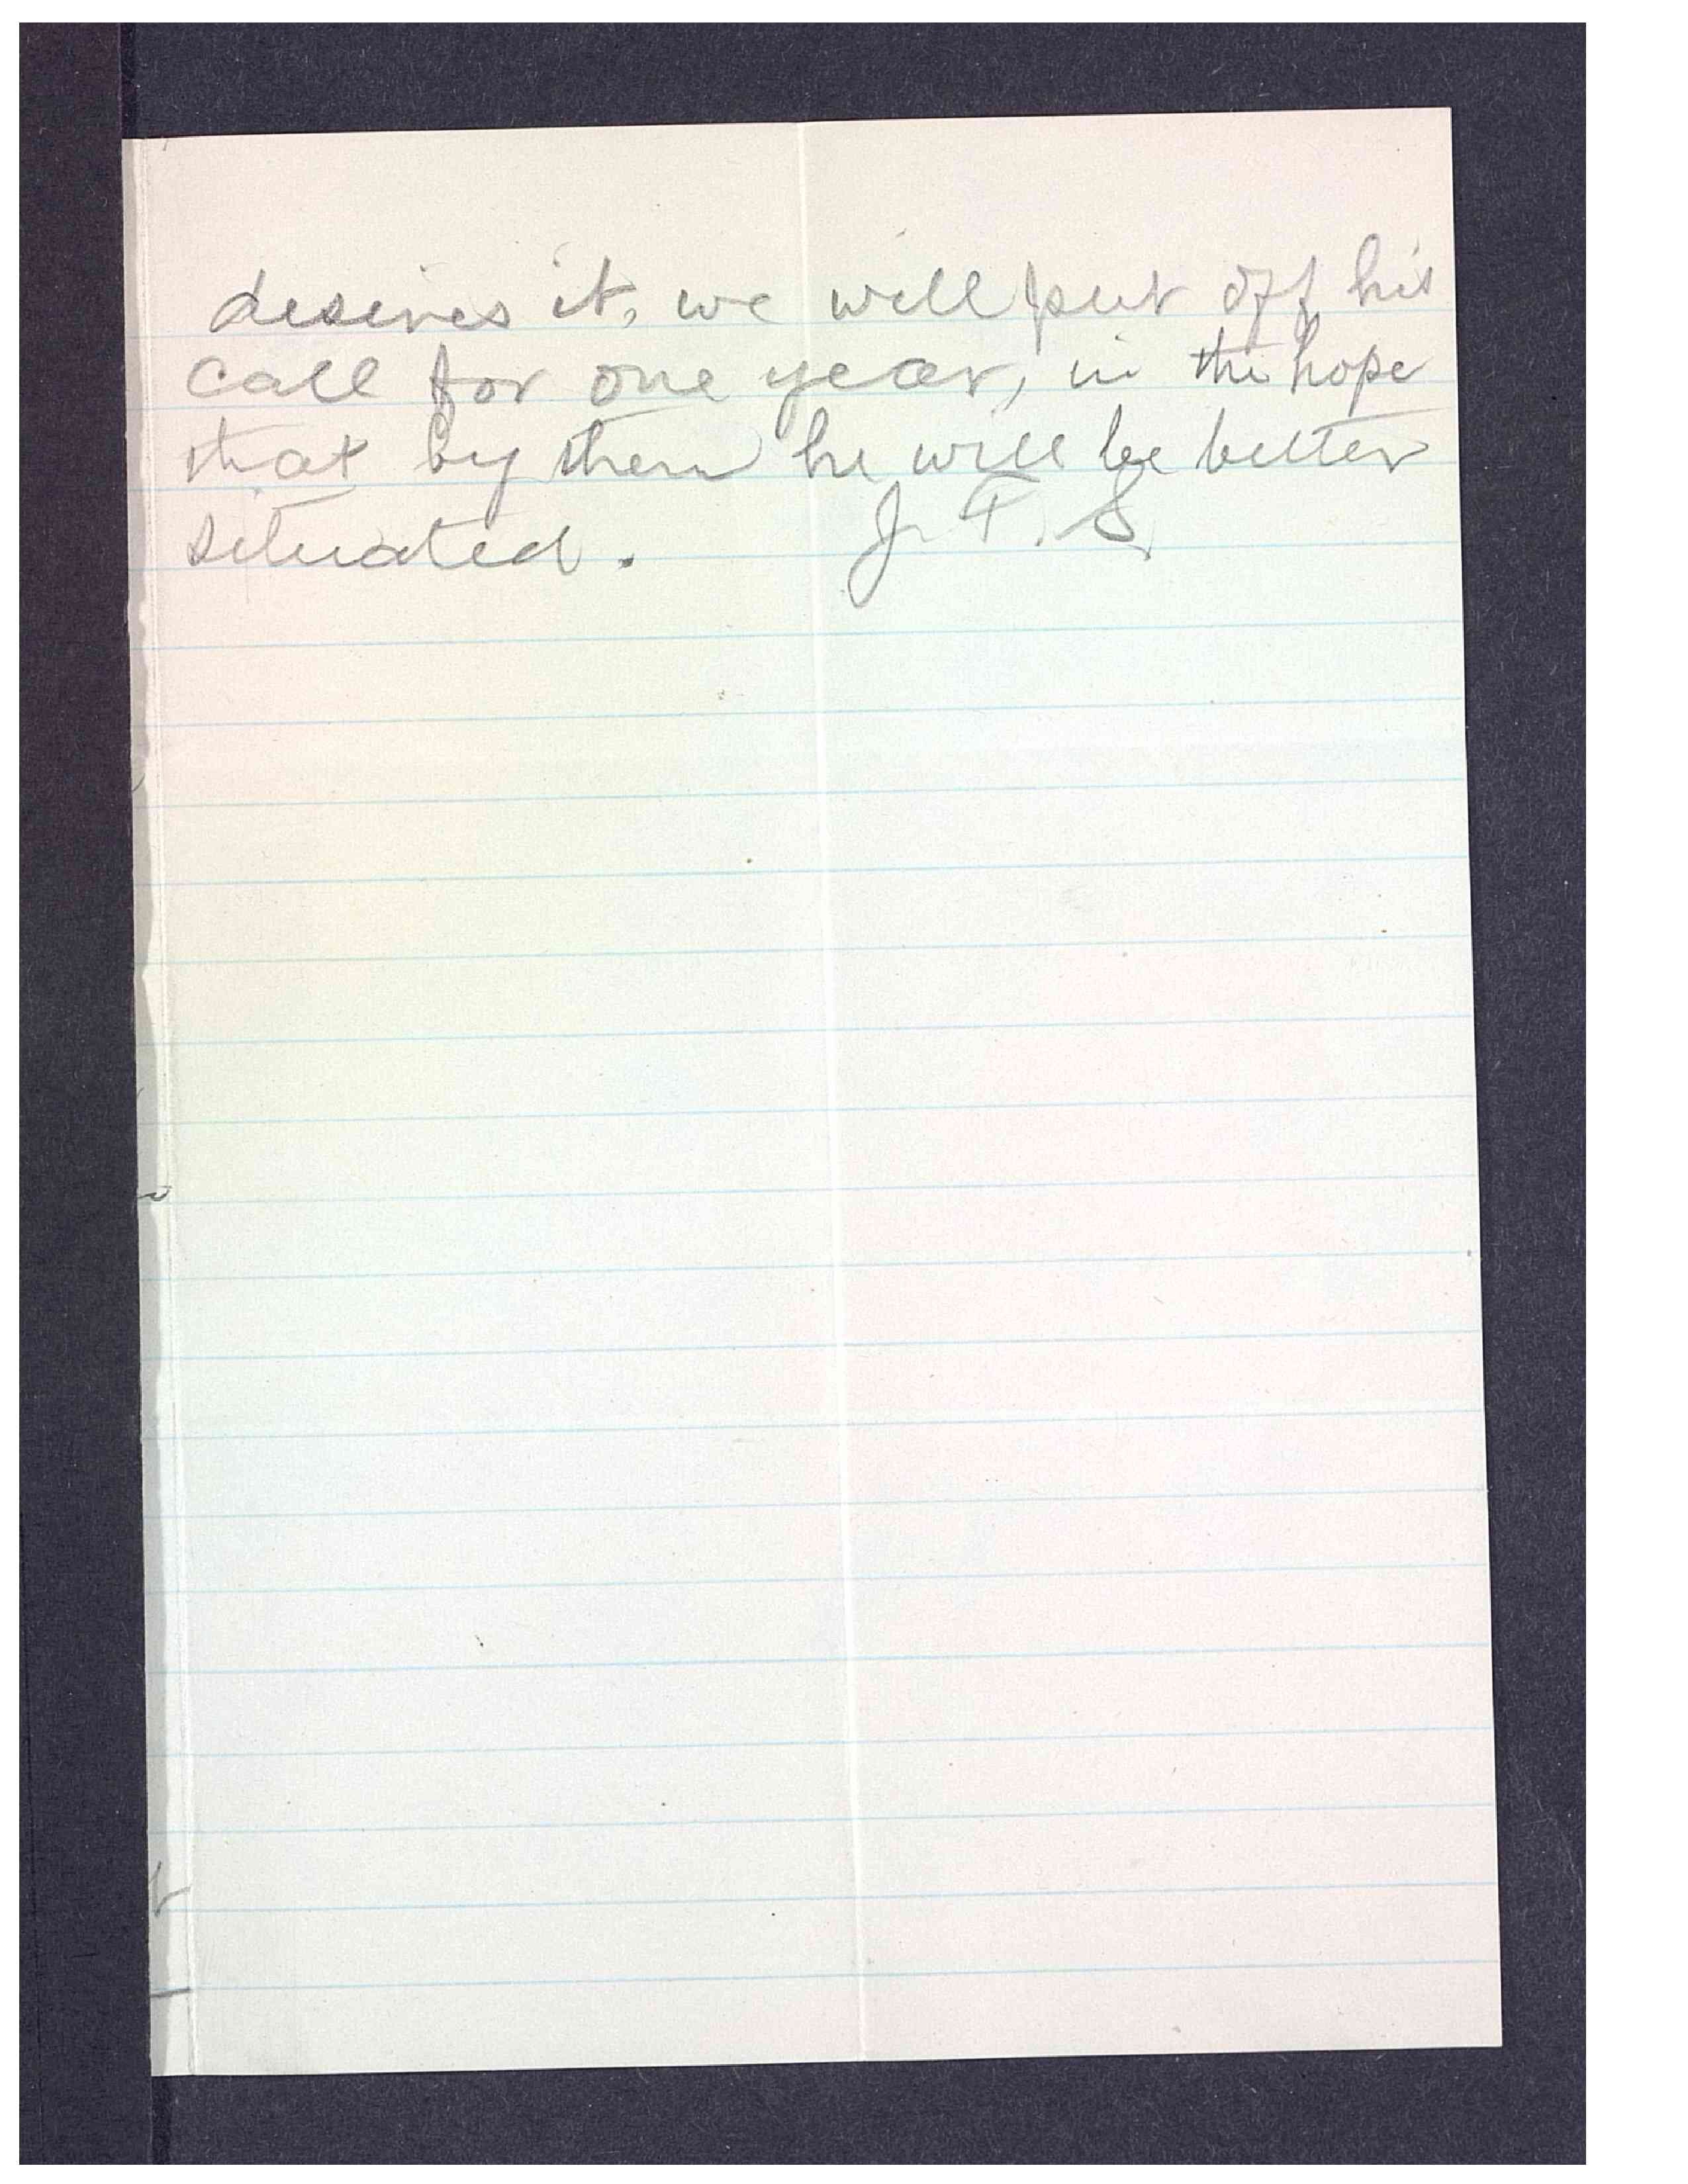 desires it, we will put off his
call for one year, in the hope
that by then he will be better
situated. J. F. S.